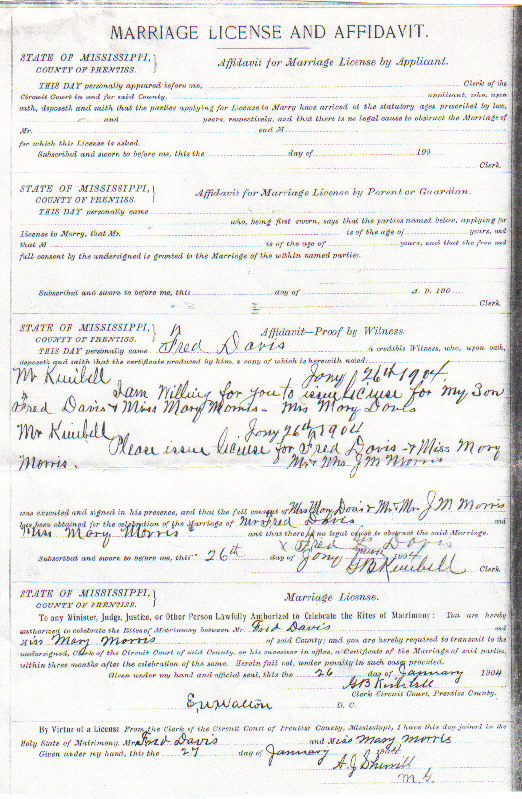 MARRIAGE LICENSE AND AFFIDAVIT.
STATE OF MISSISSIPPI,
COUNTY OF PRENTISS.
Affidavit for Marriage License by Applicant.
THIS DAY personally appeared before me, Clerk of the
Circuit Court in and for said County, applicant, who, upon
oath, deposeth and saith that the parties applying for License to Marry have arrived at the statutory ages prescribed by law,
and years, respectively, and that there is no legal cause to obstruct the Marriage of
Mr. and M
for which this License is asked.
Subscribed and sworn to before me, this the day of 190
Clerk.
STATE OF MISSISSIPPI,
COUNTY OF PRENTISS.
Affidavit for Marriage License by Parent or Guardian.
THIS DAY personally came
who, being first sworn, says that the parties named below, applying for
License to Marry, that Mr. is of the age of years, and
that M is of the age of years, and that the free and
full consent by the undersigned is granted to the Marriage of the within named parties.
Subscribed and sworn to before me, this day of A. D. 190
Clerk.
STATE OF MISSISSIPPI,
COUNTY OF PRENTISS.
Affidavit—Proof by Witness.
THIS DAY personally came Fred Davis a credible Witness, who, upon oath,
deposeth and saith that the certificate produced by him, a copy of which is herewith noted:
Mr Kimbell Jany 26th 1904.
I am Willing for you to issue License for my Son
Fred Davis & Miss Mary Morris - Mrs Mary Davis
Mr Kimbell Jany 26th 1904
Please issue license for Fred Davis & Miss Mary
Morris. Mr & Mrs J M Morris
was executed and signed in his presence, and that the full consent of Mrs Mary Davis & Mr & Mrs J M Morris
has been obtained for the celebration of the Marriage of Mr Fred Davis and
Miss Mary Morris and that there is no legal cause to obstruct the said Marriage.
Fred his Davis
mark
Subscribed and sworn to before me, this 26th day of Jany 1904
G B Kimbell Clerk.
STATE OF MISSISSIPPI,
COUNTY OF PRENTISS.
Marriage License.
To any Minister, Judge, Justice, or Other Person Lawfully Authorized to Celebrate the Rites of Matrimony: You are hereby
authorized to celebrate the Rites of Matrimony between Mr. Fred Davis and
Miss Mary Morris of said County; and you are hereby required to transmit to the
undersigned, Clerk of the Circuit Court of said County, or his successor in office, a Certificate of the Marriage of said parties,
within three months after the celebration of the same. Herein fail not, under penalty in such case provided.
Given under my hand and official seal, this the 26 day of January 1904
G B Kimbell
Clerk Circuit Court, Prentiss County.
D. C.
By Virtue of a License From the Clerk of the Circuit Court of Prentiss County, Mississippi, I have this day joined in the
Holy State of Matrimony, Mr. Fred Davis and Miss Mary Morris
Given under my hand, this the 27 day of January 1904
A J Sherrill
M. G.